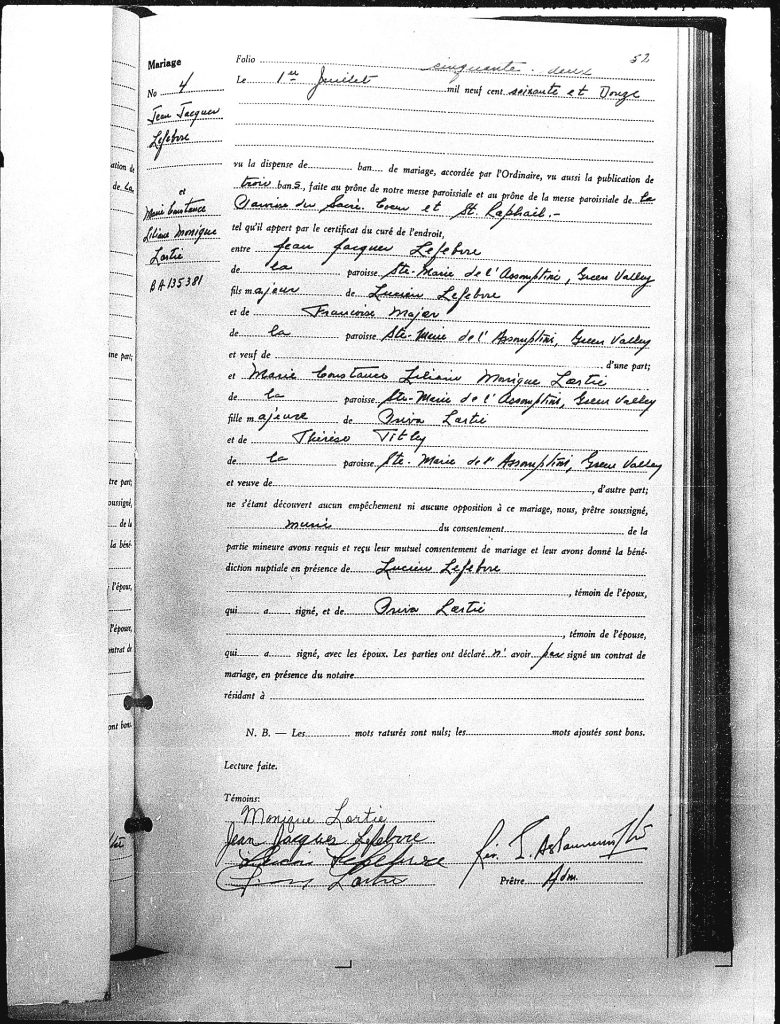 Mariage
Folio cinquante-deux 52
No 4
Le 1er Juillet mil neuf cent soixante et Douze
Jean Jacques
Lefebvre
et
Marie Constance
Liliane Monique
Lortie
BA135381
vu la dispense de ban de mariage, accordée par l'Ordinaire, vu aussi la publication de
trois bans, faite au prône de notre messe paroissiale et au prône de la messe paroissiale de la
Paroisse du Sacré Coeur et St. Raphaël.-
tel qu'il appert par le certificat du curé de l'endroit,
entre Jean Jacques Lefebvre
de la paroisse Ste-Marie de l'Assomption, Green Valley
fils majeur de Lucien Lefebvre
et de Francoise Major
de la paroisse Ste-Marie de l'Assomption, Green Valley
et veuf de , d'une part;
et Marie Constance Liliane Monique Lortie
de la paroisse Ste-Marie de l'Assomption, Green Valley
fille majeure de Lortie
et de Thérèse
de la paroisse Ste-Marie de l'Assomption, Green Valley
et veuve de , d'autre part;
ne s'étant découvert aucun empêchement ni aucune opposition à ce mariage, nous, prêtre soussigné,
muni du consentement de la
partie mineure avons requis et reçu leur mutuel consentement de mariage et leur avons donné la béné-
diction nuptiale en présence de Lucien Lefebvre
, témoin de l'époux,
qui a signé, et de Lortie
, témoin de l'épouse,
qui a signé, avec les époux. Les parties ont déclaré n' avoir pas signé un contrat de
mariage, en présence du notaire
résidant à
N. B. — Les mots raturés sont nuls; les mots ajoutés sont bons.
Lecture faite.
Témoins:
Monique Lortie
Jean Jacques Lefebvre
Lucien Lefebvre
Lortie
Rév.
Prêtre Adm.
ation de
de la
une part;
tre part;
oussigné,
de la
la béné-
l'époux,
l'épouse,
ontrat de
ont bons.